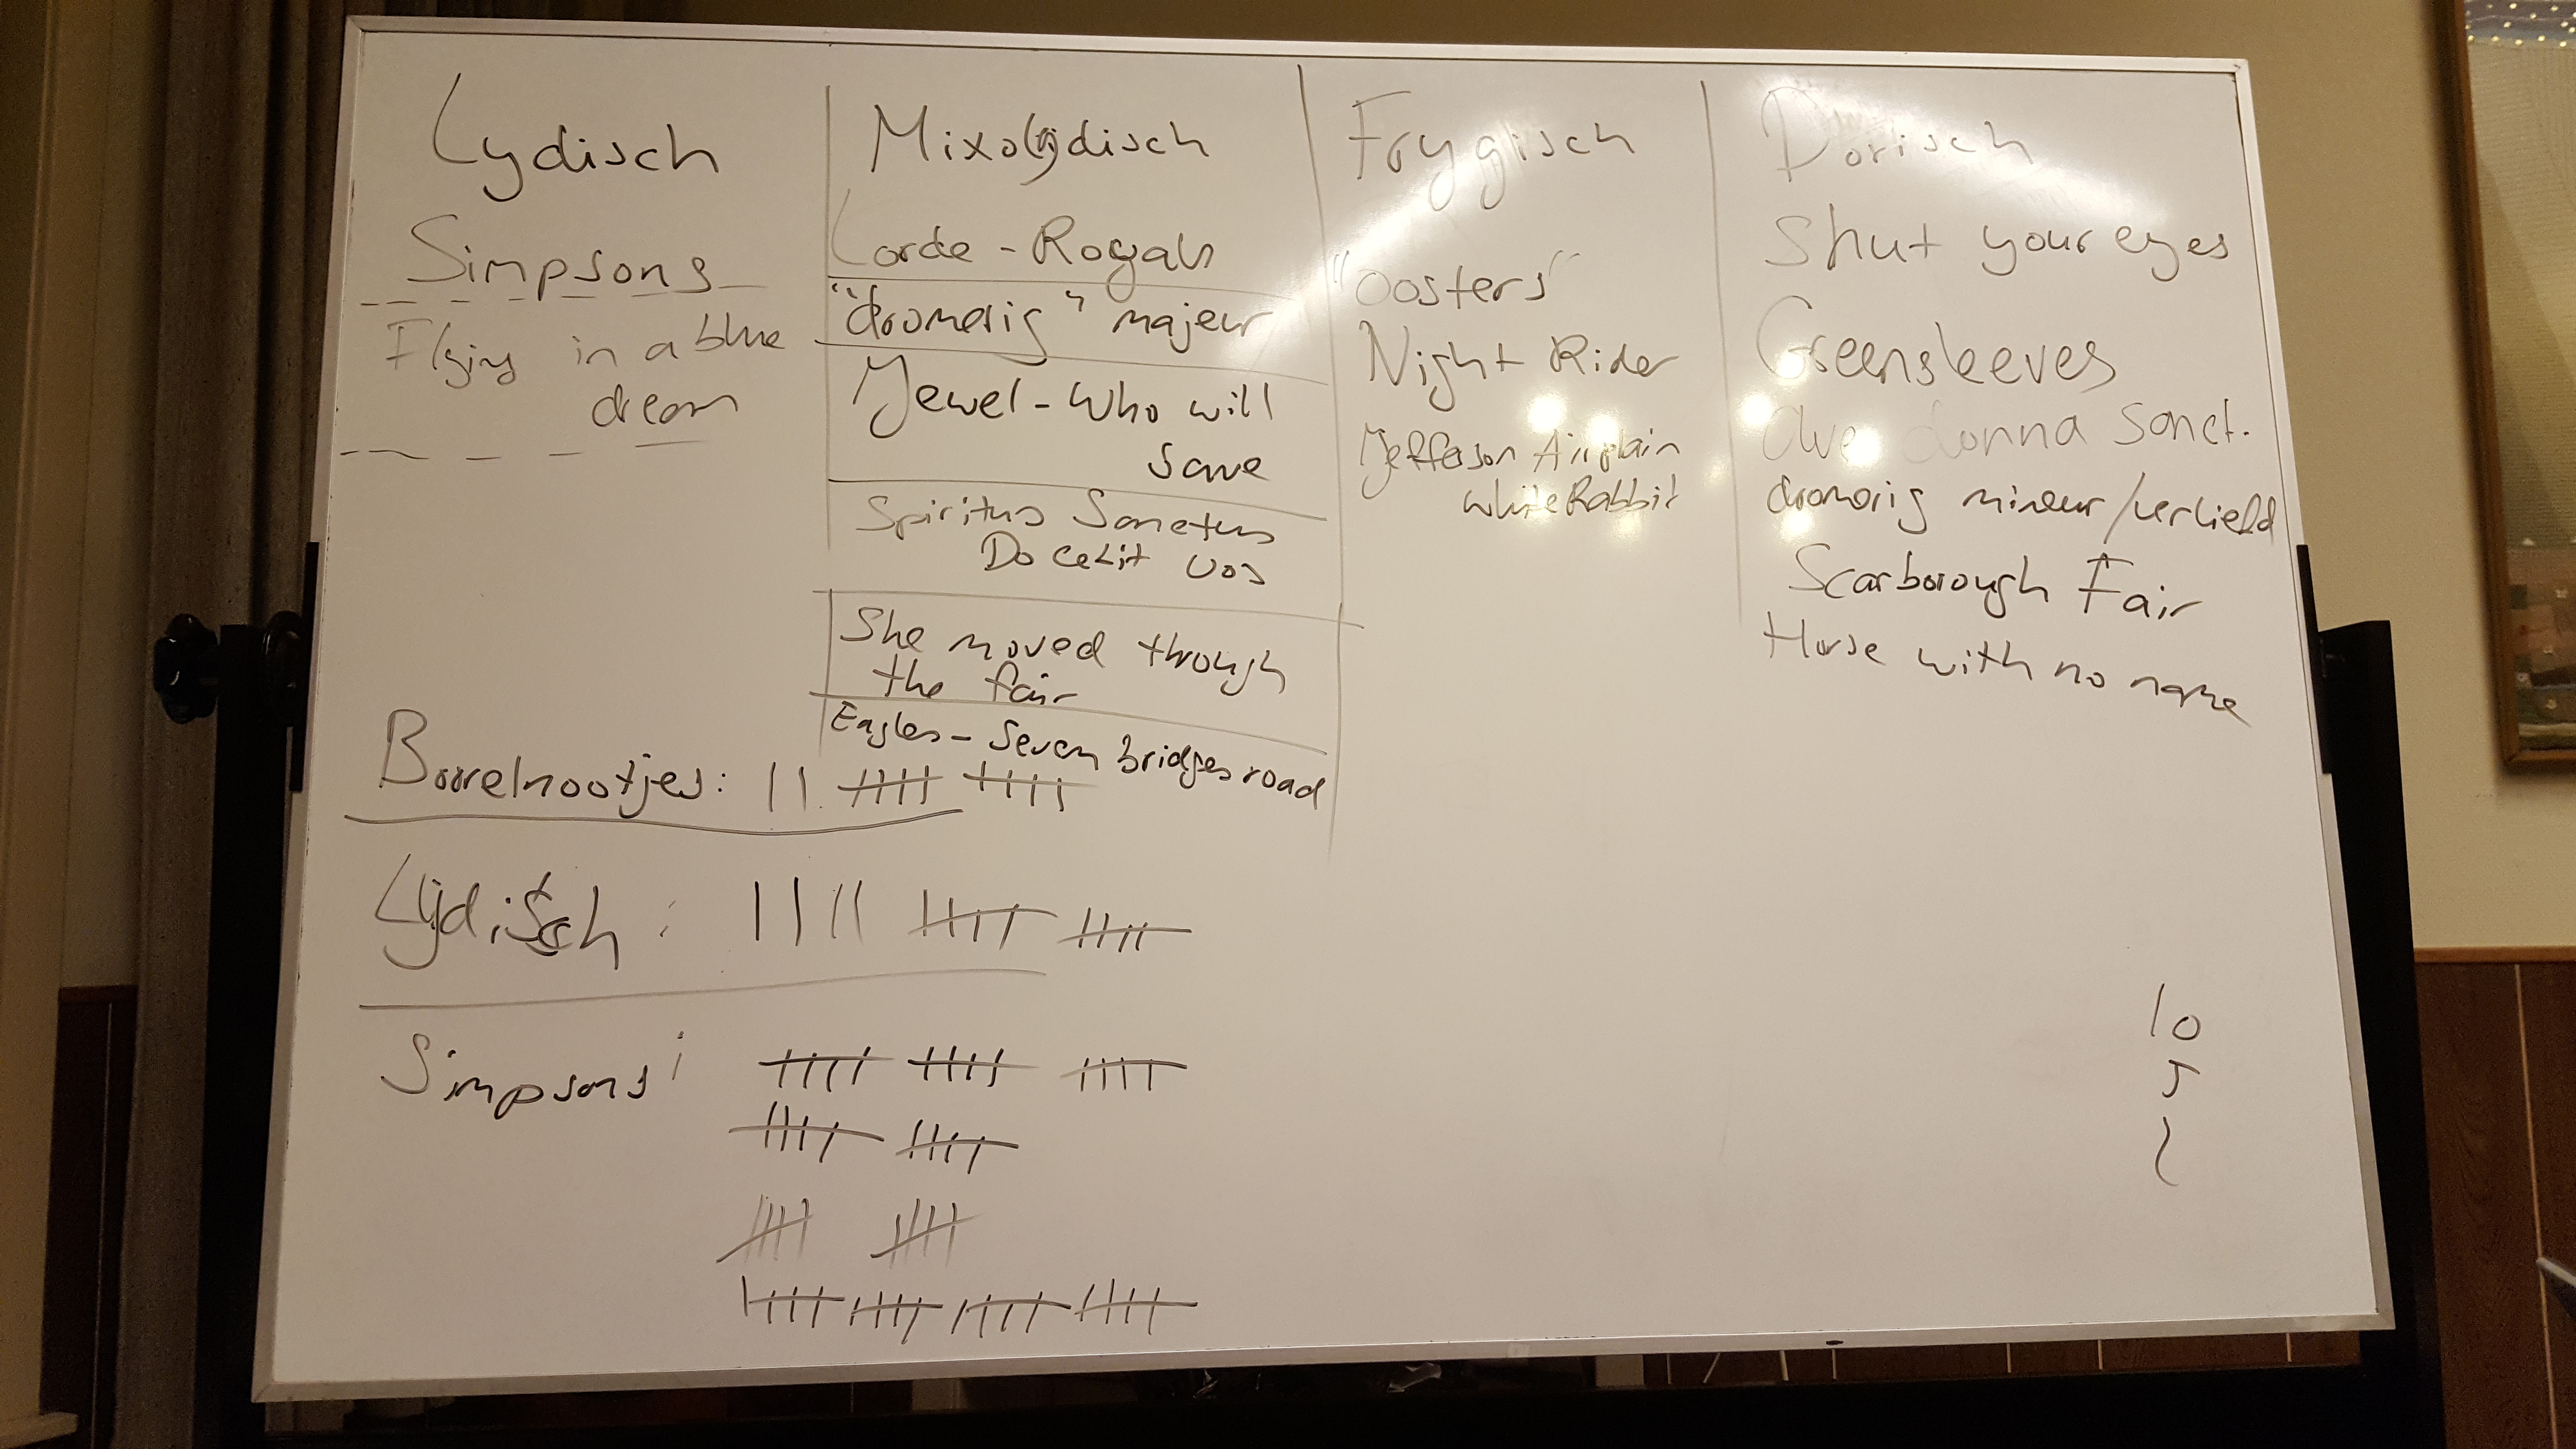 Lydisch
Simpsons
Flying in a blue
dream
Mixolydisch
Lorde - Royals
"dromerig" majeur
Jewel - Who will
save
Spiritus Sanctus
Docebit vos
She moved through
the fair
Eagles - Seven bridges road
Frygisch
"Oosters"
Night Rider
Jefferson Airplain
White Rabbit
Dorisch
Shut your eyes
Greensleeves
Ave donna sanct.
dromerig mineur/verliefd
Scarborough Fair
Horse with no name
Borrelnootjes:
Lydisch:
Simpsons:
10
5